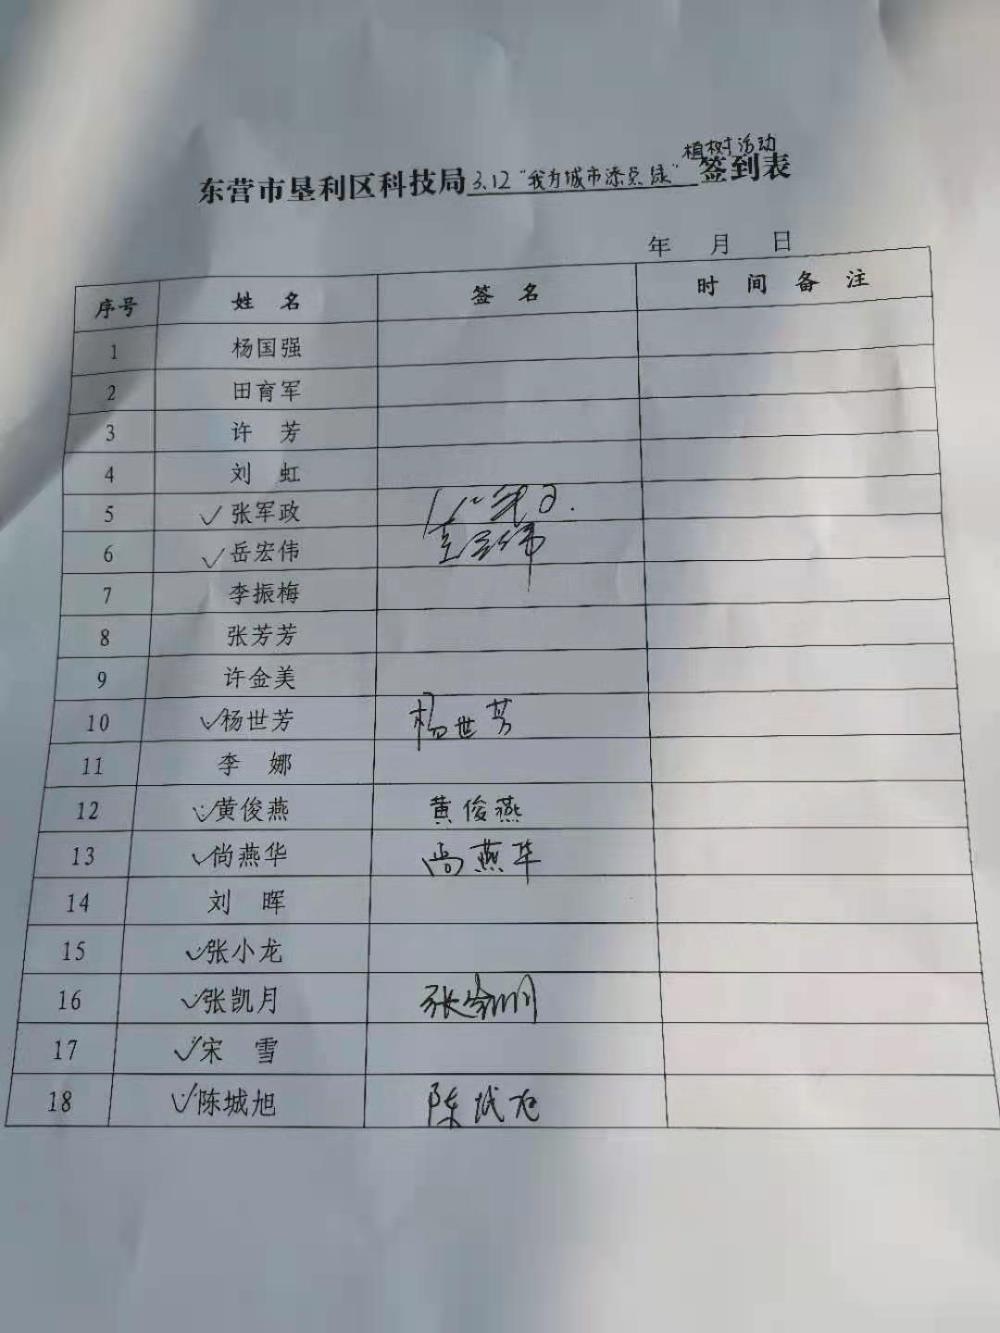 东营市垦利区科技局3.12"我为城市添点绿"植树活动签到表
年 月 日
序号 姓名 签名 时间备注
1 杨国强
2 田育军
3 许芳
4 刘虹
5 ✓张军政
6 ✓岳宏伟
7 李振梅
8 张芳芳
9 许金美
10 ✓杨世芳 杨世芳
11 李娜
12 ✓黄俊燕 黄俊燕
13 ✓尚燕华 尚燕华
14 刘晖
15 ✓张小龙
16 ✓张凯月 张凯月
17 ✓宋雪
18 ✓陈城旭 陈城旭